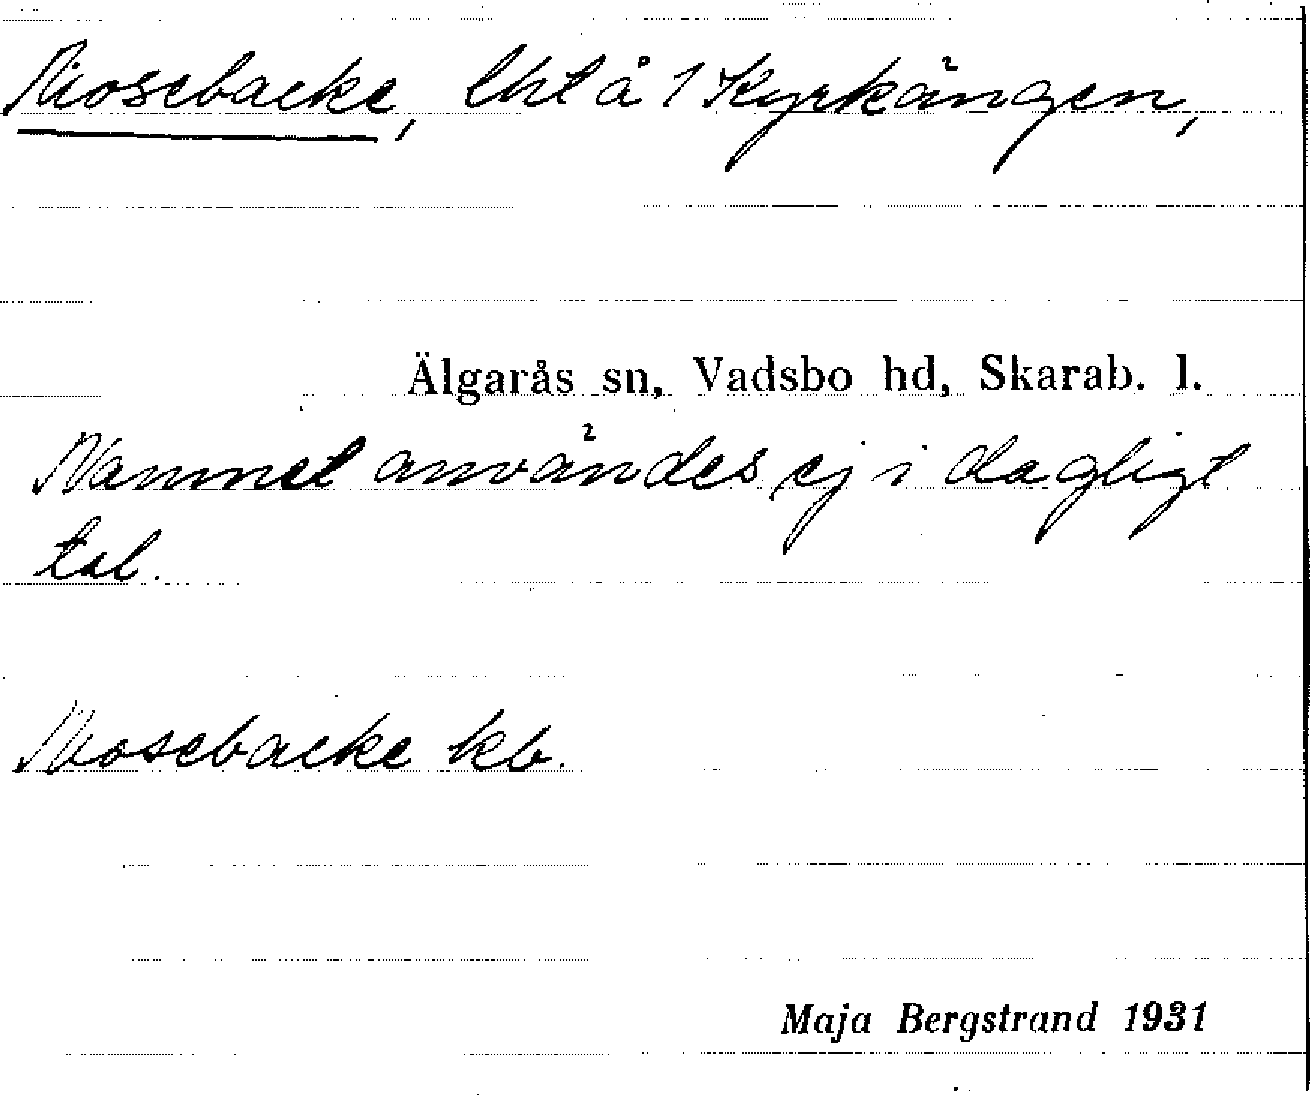 Mosebacke, lht å 1 Kyrkängen,
Älgarås sn, Vadsbo hd, Skarab. l.
Namnet användes ej i dagligt
tal.
Mosebacke kb.
Maja Bergstrand 1931